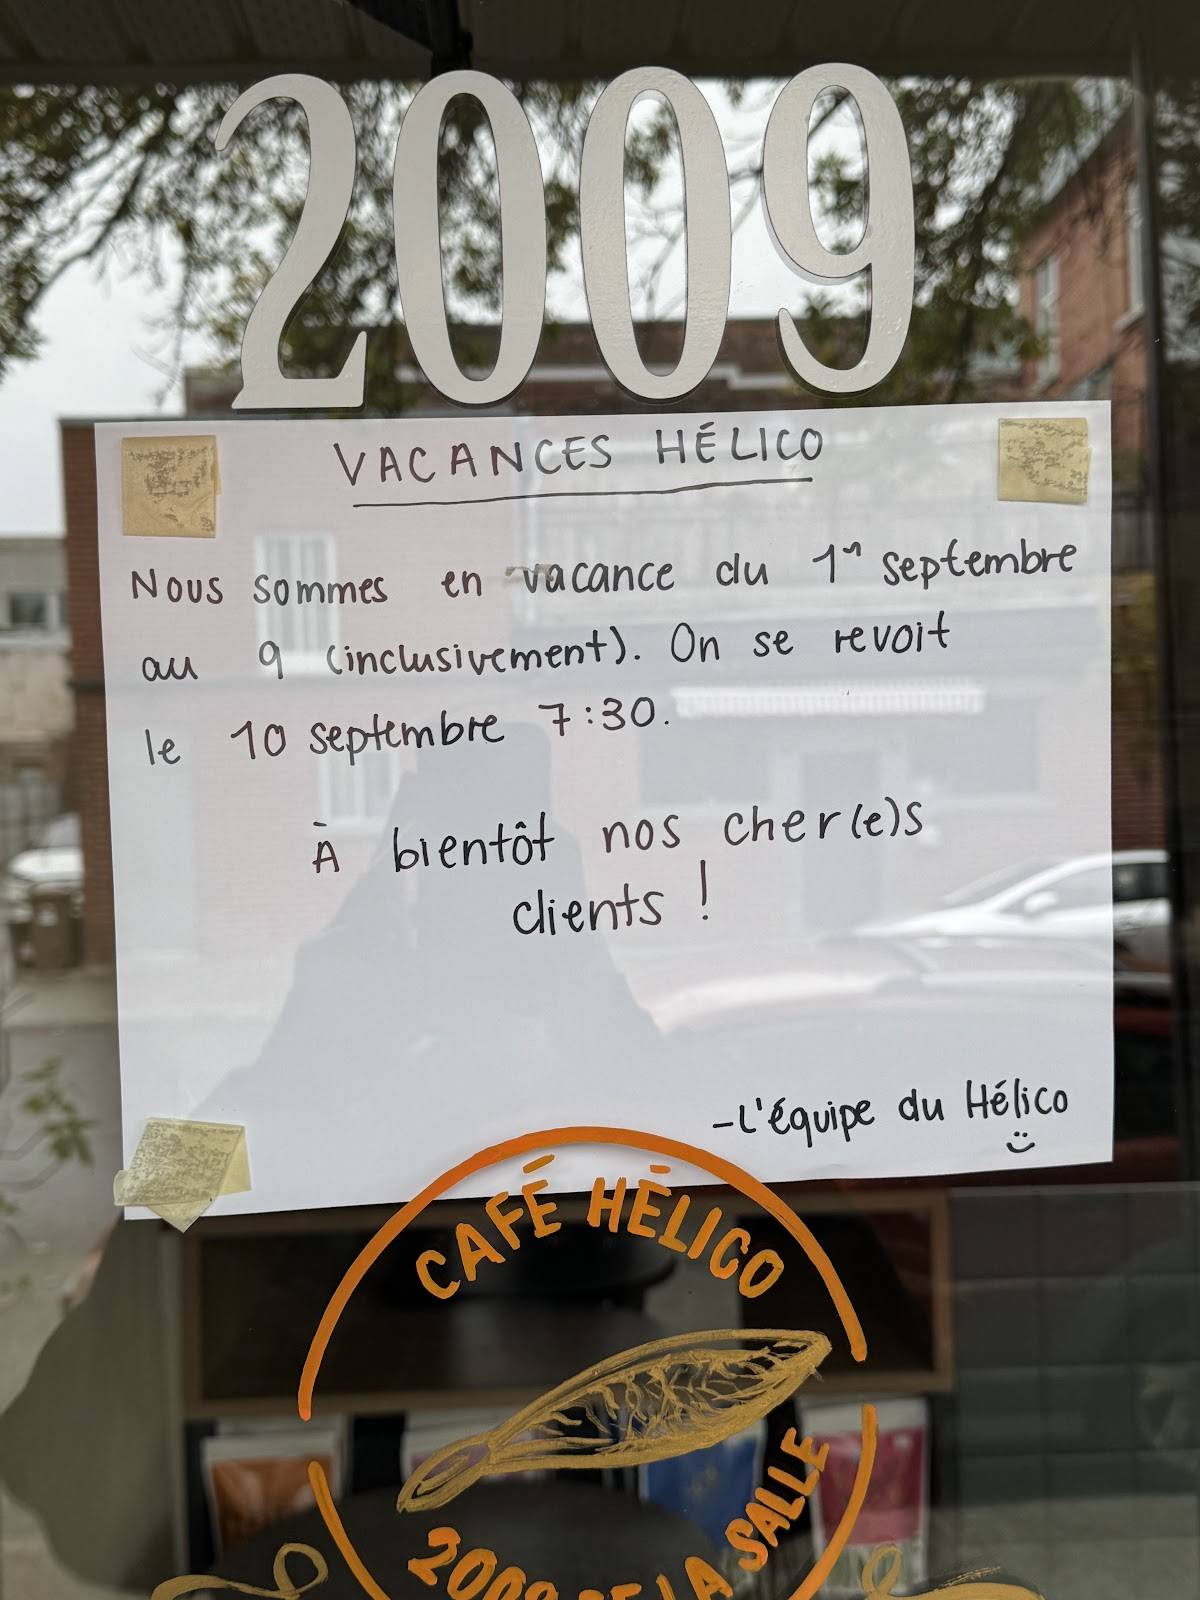 2009
VACANCES HÉLICO
Nous sommes en vacance du 1er septembre
au 9 (inclusivement). On se revoit
le 10 septembre 7:30.
À bientôt nos cher(e)s
clients !
-L'équipe du Hélico
CAFÉ HÉLICO
2009 DE LA SALLE